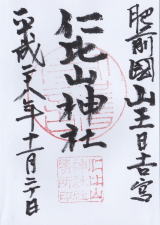 肥前國山王日吉宮
仁比山神社
平成二十八年十一月二十日